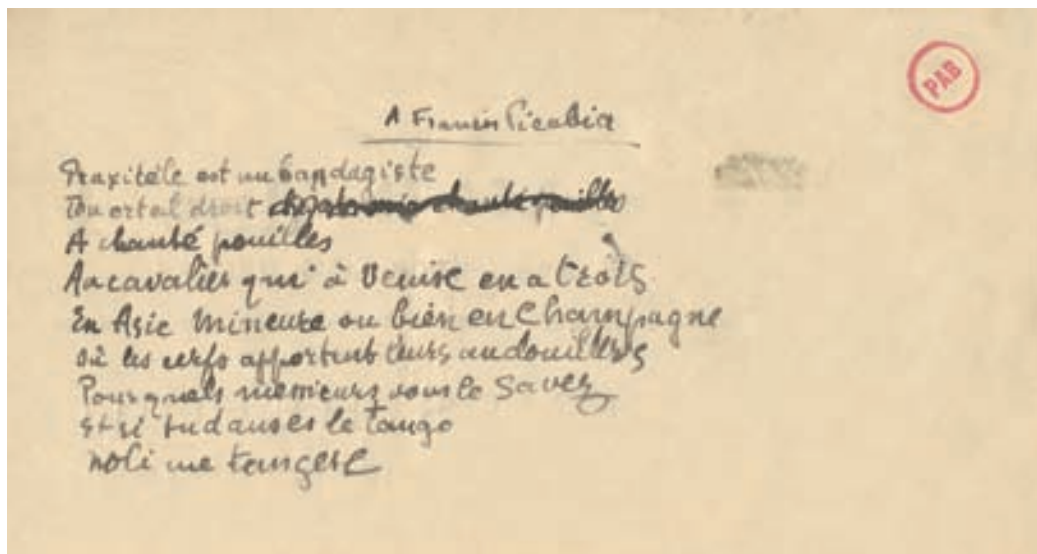 PAB
A Francis Picabia
Praxitèle est un bandagiste
Ton orteil droit
A chanté pouilles
Au cavalier qui à Venise en a trois
En Asie Mineure ou bien en Champagne
Où les cerfs apportent leurs andouillers
Pour quels messieurs vous le savez
Et si tu danses le tango
Noli me tangere